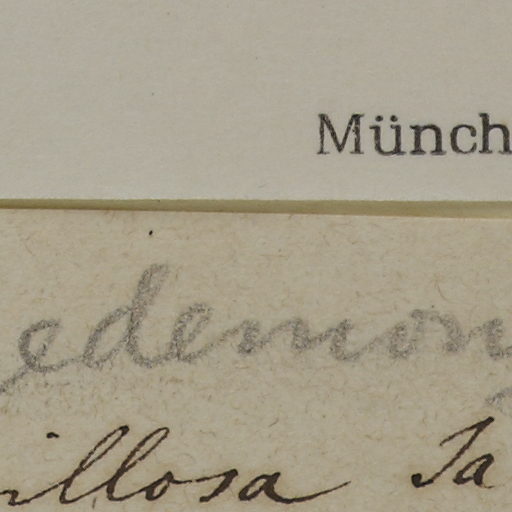 Münch
edemon
illosa Ja